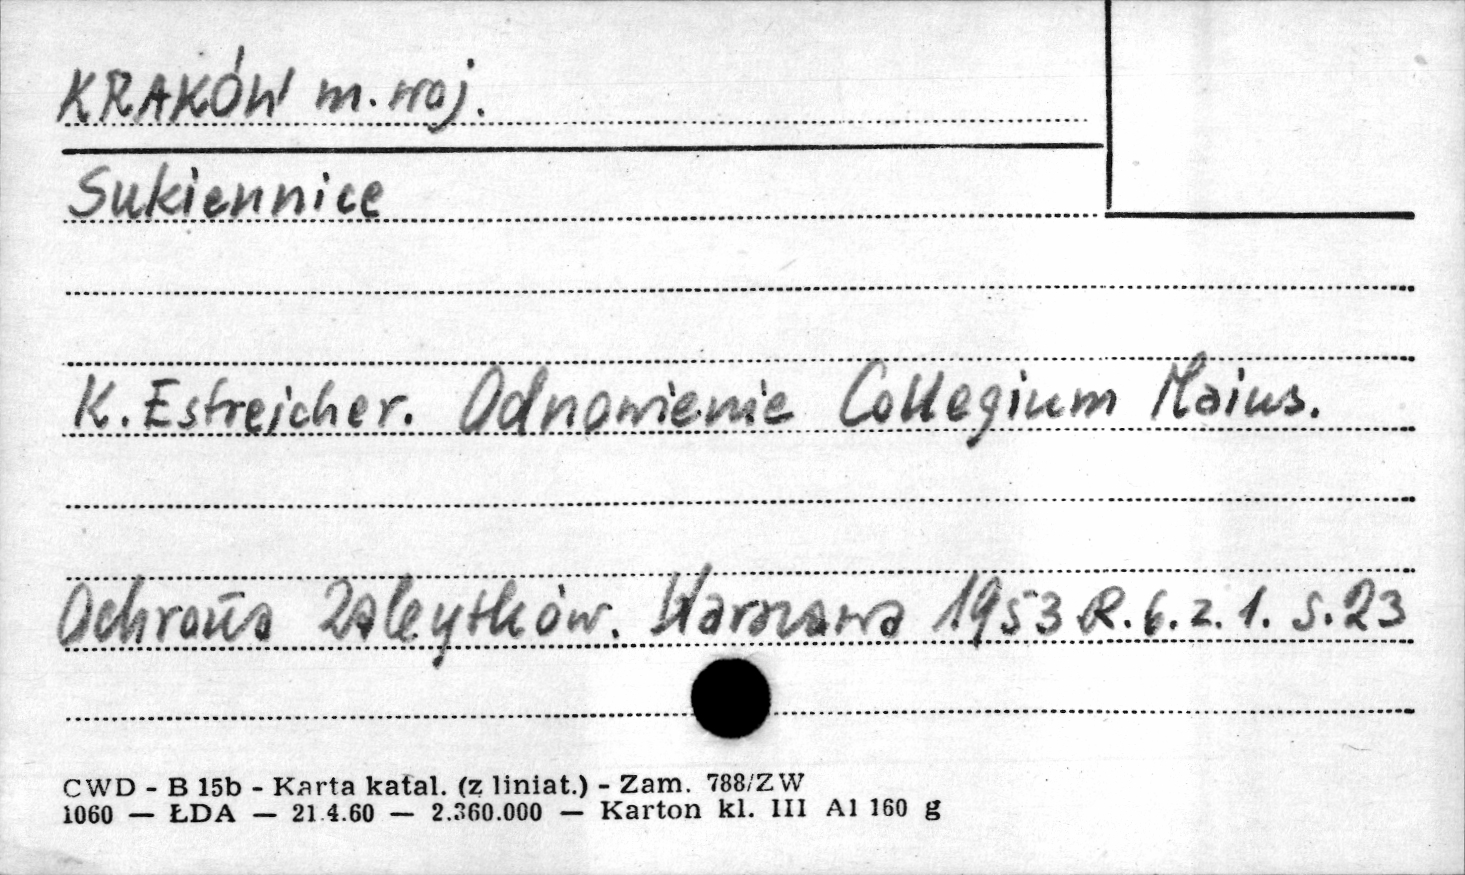 KRAKÓW m. woj.
Sukiennice
K. Estreicher. Odnowienie Collegium Maius.
Ochrona Zabytków. Warszawa 1953 R. 6. z. 1. s. 23
CWD - B 15b - Karta katal. (z liniat.) - Zam. 788/ZW
1060 — ŁDA — 21.4.60 — 2.360.000 — Karton kl. III A1 160 g